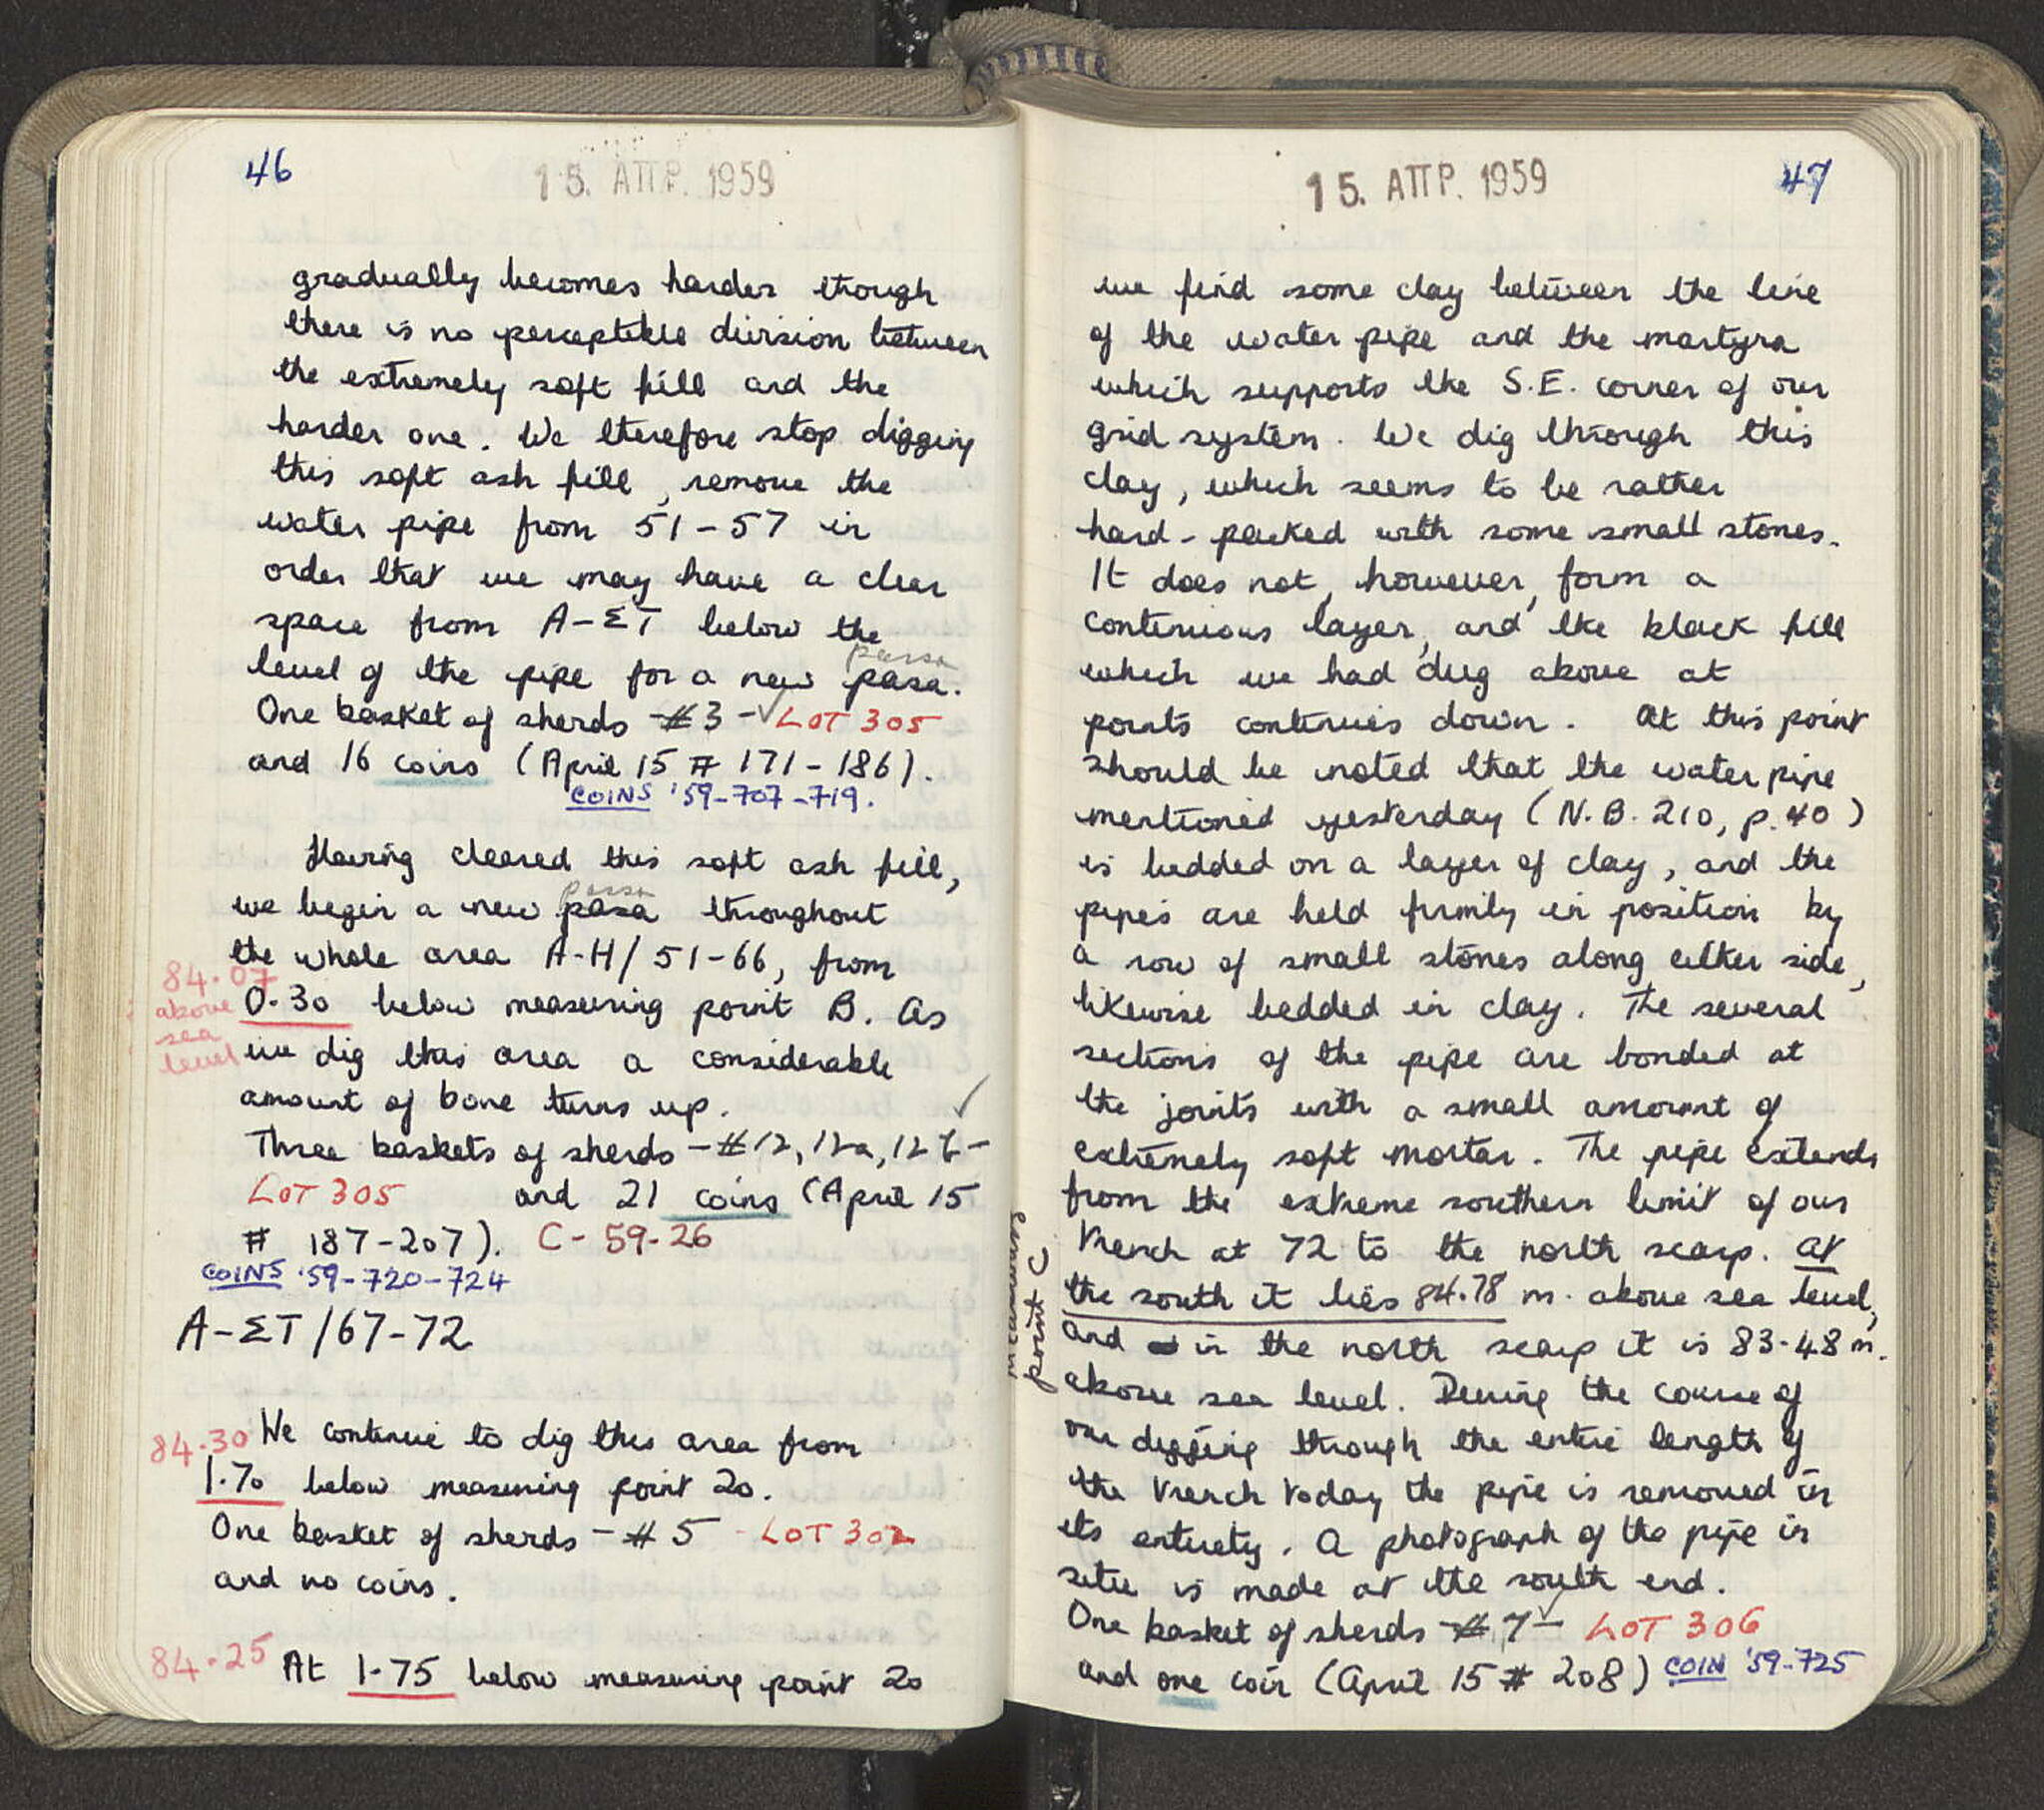 46
15. ΑΠΡ. 1959
gradually becomes harder though
there is no perceptible division between
the extremely soft fill and the
harder one. We therefore stop digging
this soft ash fill, remove the
water pipe from 51-57 in
order that we may have a clear
space from A-ΣT below the
passa
level of the pipe for a new pasa.
One basket of sherds -#3- ✓ LOT 305
and 16 coins (April 15 # 171-186).
COINS '59-707-719.
Having cleared this soft ash fill,
passa
we begin a new pasa throughout
the whole area A-H/51-66, from
84.07 above sea level
0.30 below measuring point B. As
we dig this area a considerable
amount of bone turns up. ✓
Three baskets of sherds -#12, 12a, 12b-
LOT 305 and 21 coins (April 15
# 187-207). C-59-26
COINS '59-720-724
A-ΣT/67-72
84.30 We continue to dig this area from
1.70 below measuring point 20.
One basket of sherds -#5 - LOT 302
and no coins.
84.25 At 1.75 below measuring point 20
47
15. ΑΠΡ. 1959
we find some clay between the line
of the water pipe and the martyra
which supports the S.E. corner of our
grid system. We dig through this
clay, which seems to be rather
hard-packed with some small stones.
It does not, however, form a
continuous layer, and the black fill
which we had dug above at
points continues down. At this point
should be noted that the water pipe
mentioned yesterday (N.B. 210, p.40)
is bedded on a layer of clay, and the
pipes are held firmly in position by
a row of small stones along either side,
likewise bedded in clay. The several
sections of the pipe are bonded at
the joints with a small amount of
extremely soft mortar. The pipe extends
from the extreme southern limit of our
trench at 72 to the north scarp. At
the south it lies 84.78 m. above sea level,
measuring point C
and in the north scarp it is 83.48 m.
above sea level. During the course of
our digging through the entire length of
the trench today the pipe is removed in
its entirety. A photograph of the pipe in
situ is made at the south end.
One basket of sherds -#7- ✓ LOT 306
and one coin (April 15 # 208) COIN '59-725